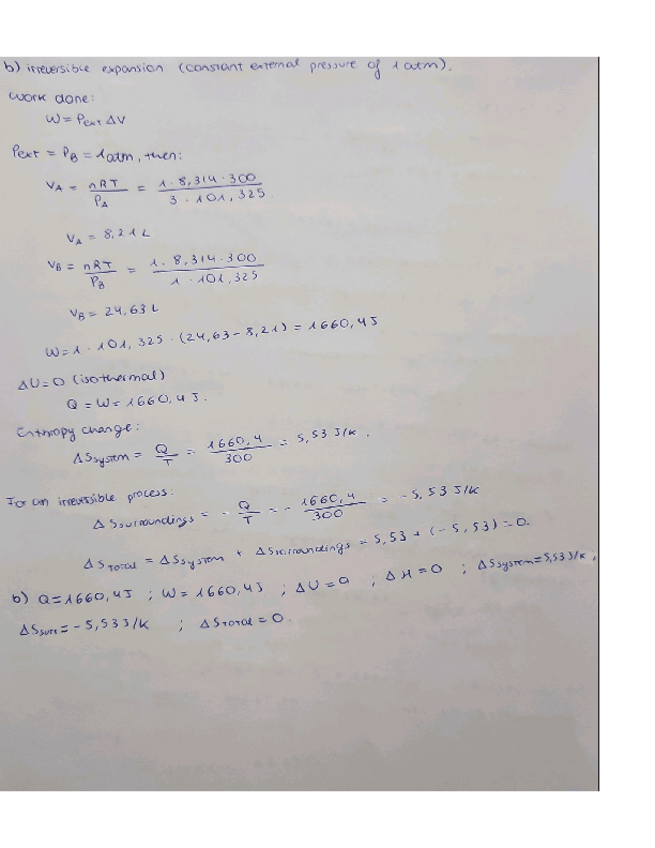 b) irreversible expansion (constant external pressure of 1 atm).
Work done:
W = Pext ΔV
Pext = PB = 1 atm, then:
VA = nRT / PA = 1 · 8,314 · 300 / 3 · 101,325
VA = 8,21 L
VB = nRT / PB = 1 · 8,314 · 300 / 1 · 101,325
VB = 24,63 L
W = 1 · 101,325 · (24,63 - 8,21) = 1660,4 J
ΔU = 0 (isothermal)
Q = W = 1660,4 J.
Enthropy change:
ΔSsystem = Q / T = 1660,4 / 300 = 5,53 J/K.
For an irreversible process:
ΔSsurroundings = - Q / T = - 1660,4 / 300 = -5,53 J/K
ΔSTotal = ΔSsystem + ΔSsurroundings = 5,53 + (-5,53) = 0.
b) Q = 1660,4 J ; W = 1660,4 J ; ΔU = 0 ; ΔH = 0 ; ΔSsystem = 5,53 J/K ,
ΔSsurr = -5,53 J/K ; ΔSTotal = 0.